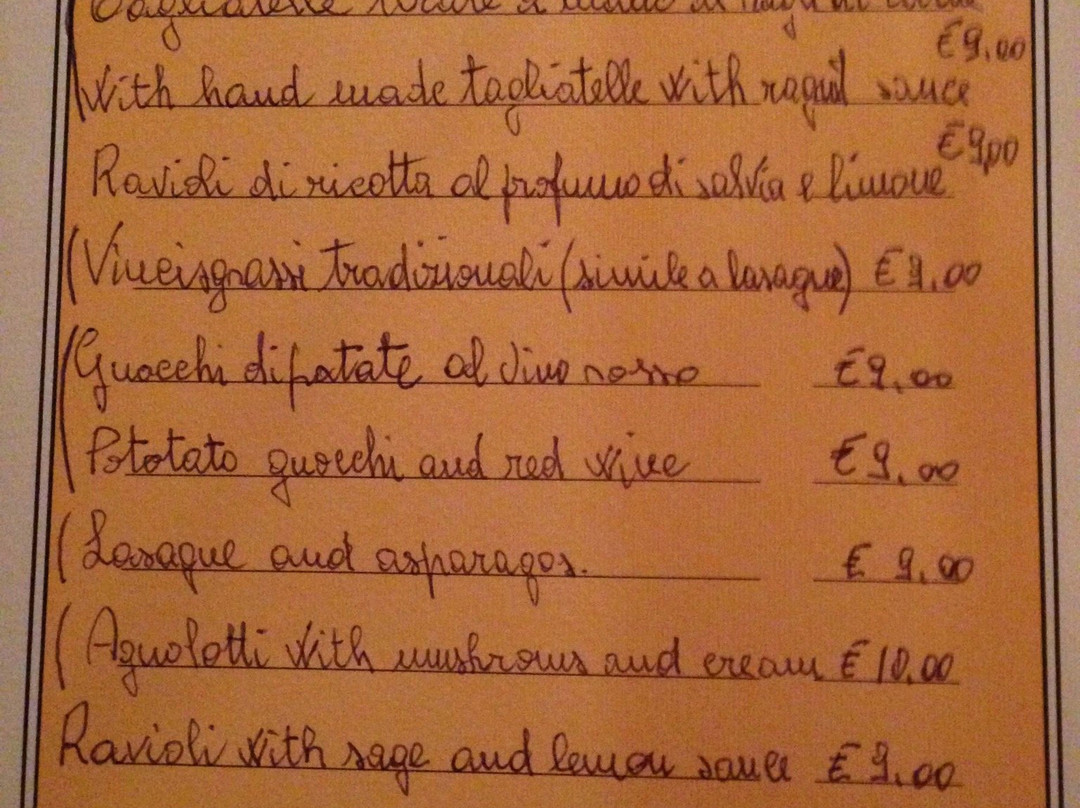 Tagliatelle
€9,00
With hand made tagliatelle with raguit sauce
€9,00
Ravioli di ricotta al profumo di salvia e limone
(Vincisgrassi tradizionali (simile a lasagne) €9,00
(Gnocchi di patate al vino rosso €9,00
Pototato gnocchi and red wine €9,00
(Lasagne and asparagos. € 9,00
(Agnolotti with mushroms and cream €10,00
Ravioli with sage and lemon sauce €9,00